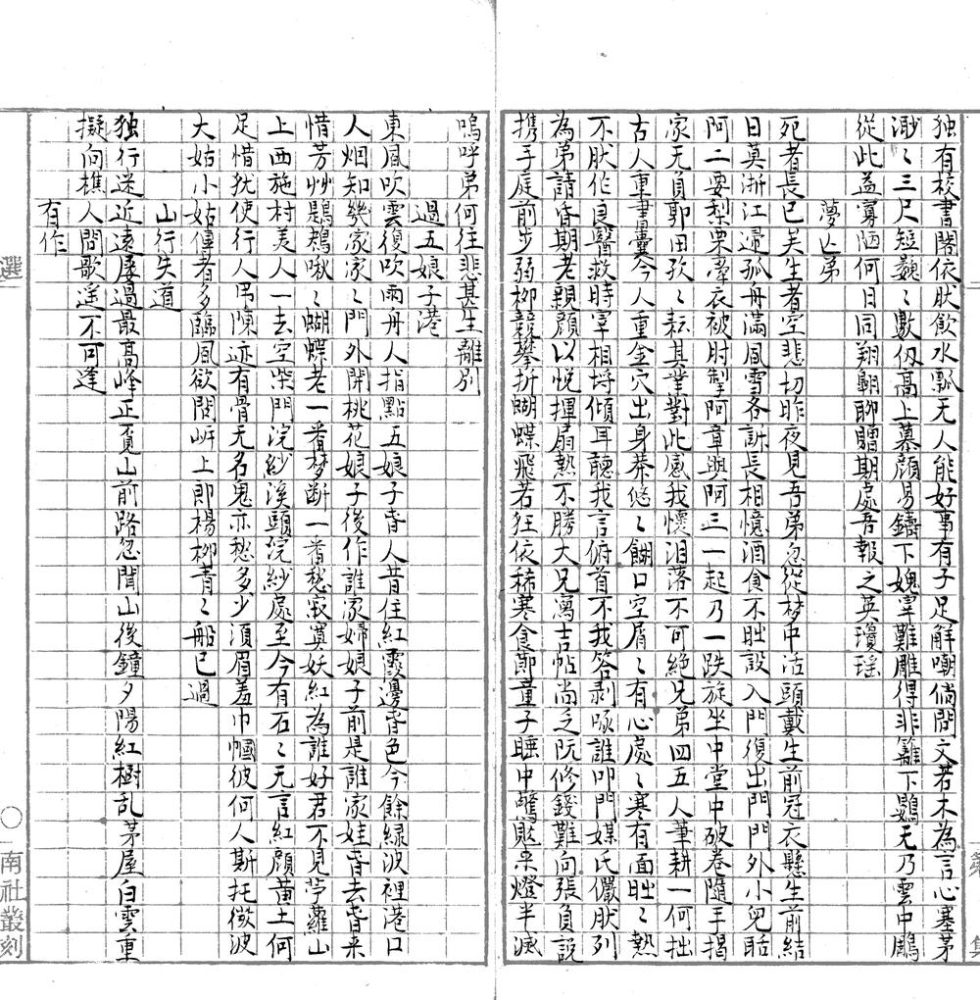 独有校書閣依狀飲水瓢无人能好事有子足解嘲倘問文若木為言心塞茅
渺〻三尺短巍〻數仭高上慕顔易鑄下媿宰難雕得非籬下鷃无乃雲中鵰
從此益寡陋何日同翔翺聊贈期處吾報之英瓊瑤
夢亾弟
死者長已矣生者空悲切昨夜見吾弟忽從梦中活頭戴生前冠衣懸生前結
日莫浙江邊孤舟滿風雪各訴長相憶酒食不暇設入門復出門門外小兒聒
阿二要梨栗牽衣被肘掣阿章與阿三一起乃一跌旋坐中堂中破卷隨手揭
家无負郭田孜〻耘其業對此感我懷泪落不可絶兄弟四五人華耕一何拙
古人重書囊今人重金穴出身莽悠〻餬口空屑〻有心處〻寒有面〻熱
不狀作良醫救時宰相埒傾耳聽我言俯首不我答剥啄誰叩門媒氏儼狀列
為弟請昏期老親顔以悦揮扇熱不勝大兄寫吉帖尚之阮修錢難向張負説
携手庭前步弱柳競攀折蝴蝶飛若狂依稀寒食節童子睡中驚獃來燈半滅
嗚呼弟何往悲甚生離别
過五娘子港
東風吹雲復吹雨舟人指點五娘子昏人昔住紅霞邊昏色今餘緑波裡港口
人烟知幾家家〻門外開桃花娘子後作誰家婦娘子前是誰家娃昏去昏来
惜芳艸鶗鴂啾〻蝴蝶老一番梦斷一番愁寂寞妖紅為誰好君不見苧蘿山
上西施村美人一去空柴門浣紗溪頭浣紗處至今有石〻无言紅顔黄土何
足惜犹使行人弔陳迹有骨无名鬼亦愁多少湏眉羞巾幗彼何人斯托微波
大姑小姑偉者多臨風欲問岍上郎楊柳青〻船已過
山行失道
独行迷近遠屡過最高峰正覓山前路忽聞山後鐘夕陽紅樹乱茅屋白雲重
擬向樵人問歌遥不可逢
有作
選
南社叢刻
集